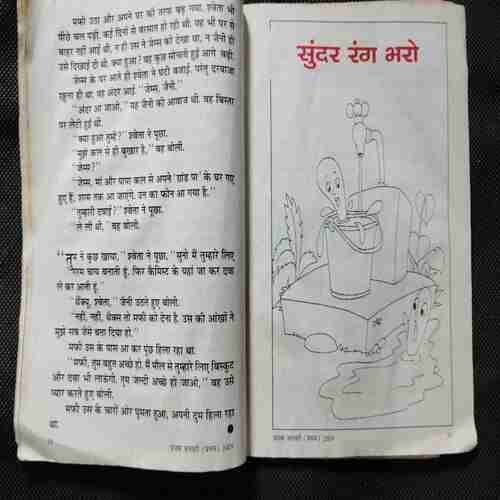 मफी उठा और अपने घर की तरफ बढ़ गया. श्वेता भी
पीछे चल पड़ी. कई दिनों से बरसात हो रही थी. वह भी घर से
बाहर नहीं आई थी. न ही उस ने जेम्स को देखा था, न जैनी ही
उसे दिखाई दी थी. क्या हुआ? वह कुछ सोचती हुई आगे बढ़ी.
जेम्स के घर आते ही श्वेता ने घंटी बजाई. परंतु दरवाजा
खुला ही था. वह अंदर आई. ‘‘जेम्स, जैनी.’’
‘‘अंदर आ जाओ,’’ यह जैनी की आवाज थी. वह बिस्तर
पर लेटी हुई थी.
‘‘क्या हुआ तुम्हें?’’ श्वेता ने पूछा.
‘‘मुझे कल से ही बुखार है,’’ वह बोली.
‘‘जेम्स?’’
‘‘जेम्स, मां और पापा कल से अपने ‘ग्रांड पा’ के घर गए
हुए हैं. शाम तक आ जाएंगे. उन का फोन आ गया है.’’
‘‘तुम्हारी दवाई?’’ श्वेता ने पूछा.
‘‘ले ली थी,’’ वह बोली.
‘‘तुम ने कुछ खाया,’’ श्वेता ने पूछा, ‘‘सुनो मैं तुम्हारे लिए
गरम चाय बनाती हूं. फिर कैमिस्ट के यहां जा कर दवा
ले कर आती हूं.’’
‘‘थैंक्यू, श्वेता,’’ जैनी उठते हुए बोली.
‘‘नहीं, नहीं, थैंक्स तो मफी को देना है. उस की आंखों ने
मुझे सब जैसे बता दिया हो.’’
मफी उस के पास आ कर पूंछ हिला रहा था.
‘‘मफी, तुम बहुत अच्छे हो. मैं मील से तुम्हारे लिए बिस्कुट
और दवा भी लाऊंगी. तुम जल्दी अच्छे हो जाओ,’’ वह उसे
प्यार करते हुए बोली.
मफी उस के चारों ओर घूमता हुआ, अपनी दुम हिला रहा
था.
सुंदर रंग भरो